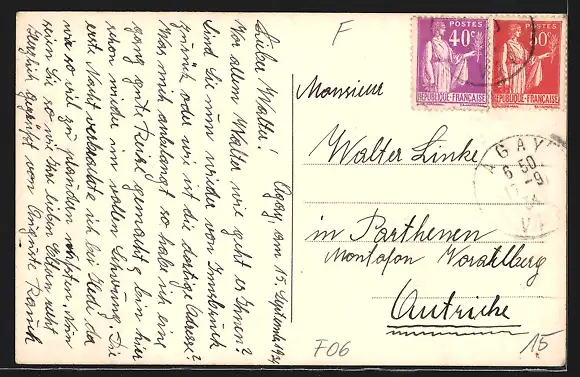 Agay, am 15. September 1934
Lieber Walter!
Vor allem Walter wie geht es Ihnen?
Sind Sie nun wieder von Innsbruck
zurück oder wie ist die dortige Adresse?
Was mich anbelangt so habe ich eine
ganz gute Reise gemacht & bin hier
schon wieder im vollen Schwung. Die
erste Nacht verbrachte ich bei Hedi da
wir so viel zu plaudern wussten. Nun
seien Sie so mit Ihre lieben Eltern recht
herzlich gegrüßt von Auguste Rauch
F
POSTES
40c
RÉPUBLIQUE-FRANÇAISE
POSTES
50c
RÉPUBLIQUE-FRANÇAISE
AGAY
6 50
VAR
Monsieur
Walter Linke
in Parthenen
Montafon Vorarlberg
Autriche
F06
15